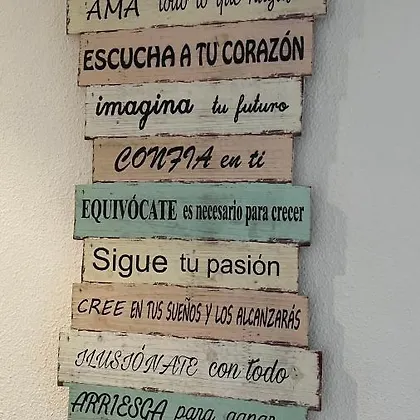 AMA todo lo que hagas
ESCUCHA A TU CORAZÓN
imagina tu futuro
CONFIA en ti
EQUIVÓCATE es necesario para crecer
Sigue tu pasión
CREE EN TUS SUEÑOS Y LOS ALCANZARÁS
ILUSIÓNATE con todo
ARRIESGA para ganar